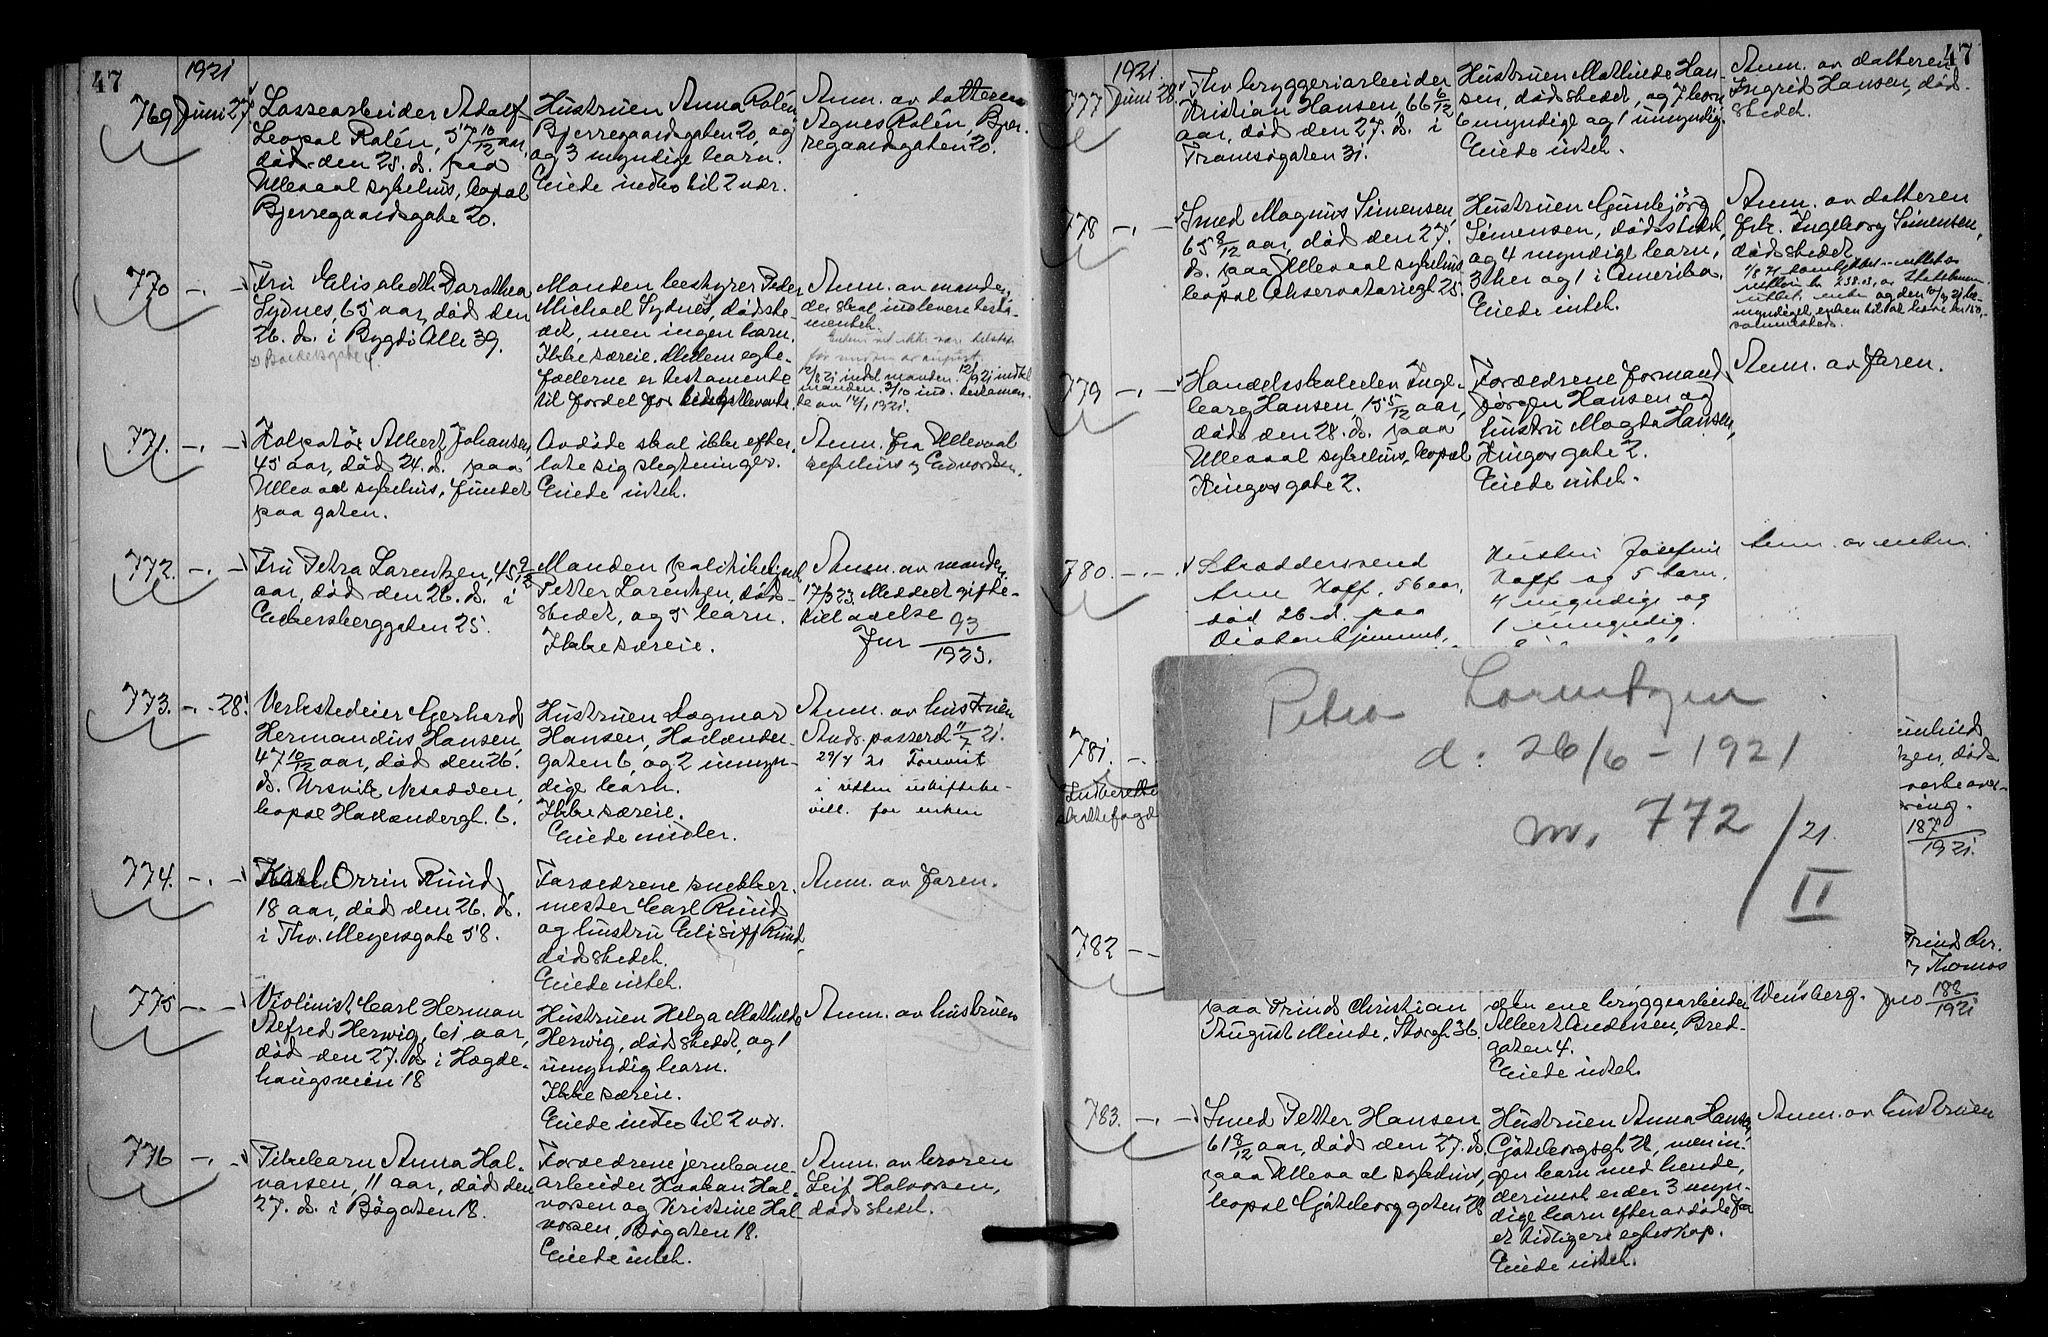 47
1921
769 Juni 27. Lossearbeider Adolf
Leopol Rolén, 57 10/12 aar,
død den 25. ds. paa
Ullevaal sykehus, bopæl
Bjerregaardsgate 20.
Hustruen Anna Rolén,
Bjerregaardsgaten 20, og
og 3 myndige barn.
Eiede indbo til 2 vær.
Anm. av datteren
Agnes Rolén, Bjer-
regaardsgaten 20.
770 -.- Fru Elisabeth Dorothea
Sydnes, 65 aar, død den
26. ds. i Bygdö Alle 39.
Manden bestyrer Peder
Michael Sydnes, dødsste-
det, men ingen barn.
Ikke særeie. Mellem egte-
fællerne er testamente
til fordel for længstlevende.
Anm. av manden,
der skal indlevere testa-
mentet.
for midten av august.
12/8 21 indk manden. 12/9 21 indk
manden. 3/10 ind. testamen-
te av 14/1 1921.
771. -.- Kolportør Albert Johansen,
45 aar, død 24. ds. paa
Ullevaal sykehus, fundet
paa gaten.
Avdøde skal ikke efter-
late sig slegtninger.
Eiede intet.
Anm. fra Ullevaal
sykehus v Edvardsen.
772. -.- Fru Petra Lorentzen, 45 2/12
aar, død den 26. ds. i
Eckersberggaten 25.
Manden politibetjent
Petter Lorentzen, død-
stedet, og 5 barn.
Ikke særeie.
Anm. av manden
17/3 23. Meddelt gifte-
tilladelse
Jnr 93/1923.
773. -.- 28. Verkstedeier Gerhard
Hermandius Hansen,
47 10/12 aar, død den 26.
ds. Ursvik, Nesodden,
bopæl Hollendergt. 6.
Hustruen Dagmar
Hansen, Hollender-
gaten 6, og 2 umyn-
dige barn.
Ikke særeie.
Eiede midler.
Anm. av hustruen
Ands. passered 11/7 21.
29/7 21 Forevist
i retten uskiftebe-
vill. for enken
774. -.- Karl Orrin Ruud,
18 aar, død den 26. ds.
i Thv. Meyersgate 58.
Forældrene snekker-
mester Carl Ruud
og hustru Elisiff Ruud,
dødsstedet.
Eiede intet.
Anm. av faren.
775 -.- Violinist Carl Herman
Alfred Herwig, 61 aar,
død den 27. ds. i Hegde-
haugsveien 18
Hustruen Helga Mathilde
Herwig, dødsstedet, og 1
umyndig barn.
Ikke særeie.
Eiede indbo til 2 vær.
Anm. av hustruen
776 -.- Pikebarn Anna Hal-
vorsen, 11 aar, død den
27. ds. i Bøgaten 18.
Forældrene jernbane-
arbeider Haakon Hal-
vorsen og Kristine Hal-
vorsen, Bøgaten 18.
Eiede intet.
Anm. av broren
Leif Halvorsen,
dødsstedet.
47
1921.
777 Juni 28. Fhv. bryggeriarbeider
Kristian Hansen, 66 6/12
aar, død den 27. ds. i
Tromsøgaten 31.
Hustruen Mathilde Han-
sen, dødsstedet, og 7 barn
6 myndige og 1 umyndig.
Eiede intet.
Anm. av datteren
Ingrid Hansen, død-
stedet.
778 -.- Smed Magnus Simensen,
65 8/12 aar, død den 27.
ds. paa Ullevaal sykehus,
bopæl Observatoriegt 25.
Hustruen Gunbjörg
Simensen, dødsstedet,
og 4 myndige barn,
3 her og 1 i Amerika.
Eiede intet.
Anm. av datteren
frk. Ingeborg Simensen,
dødsstedet.
779 -.- Handelsskoleelev Inge-
borg Hansen, 15 5/12 aar,
død den 28. ds. paa
Ullevaal sykehus, bopæl
Kingosgate 2.
Forældrene formand
Jörgen Hansen og
hustru Magda Hansen,
Kingosgate 2.
Eiede intet.
Anm. av faren.
780. -.- Skræddersvend
Arne Hoff, 56 aar,
død 26 d. paa
Diakonhjemmet,
Hustru Josefine
Hoff og 5 barn.
4 myndige og
1 umyndig.
Anm. av enken.
Petra Lorentzen
d: 26/6 - 1921
nr. 772/21.
II
781. -.-
187/1921.
782 --
Prinds Chr.
Thomas
paa Prinds Christian
August Minde, Storgt 36.
den ene bryggearbeider
Albert Andersen, Bred-
gaten 4.
Eiede intet.
Wensberg. Jno 188/1921
783. -.- Smed Petter Hansen,
61 8/12 aar, død den 27. ds.
paa Ullevaal sykehus,
bopæl Göteborggaten 28
Hustruen Anna Hansen,
Göteborggt 28, men in-
gen barn med hende,
derimot er der 3 myn-
dige barn efter avdøde fra
et tidligere egteskap.
Eiede intet.
Anm. av hustruen